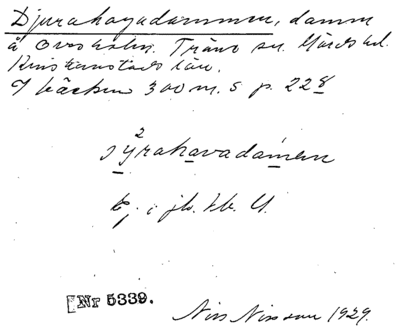 Djurahagadammen, damm
å Ovesholm. Träne sn. Gärds hd.
Kristianstads län.
I bäcken 300 m. S p. 228
2
jýrahavadámen
Nr 5339.
Nils Nilsson 1929.